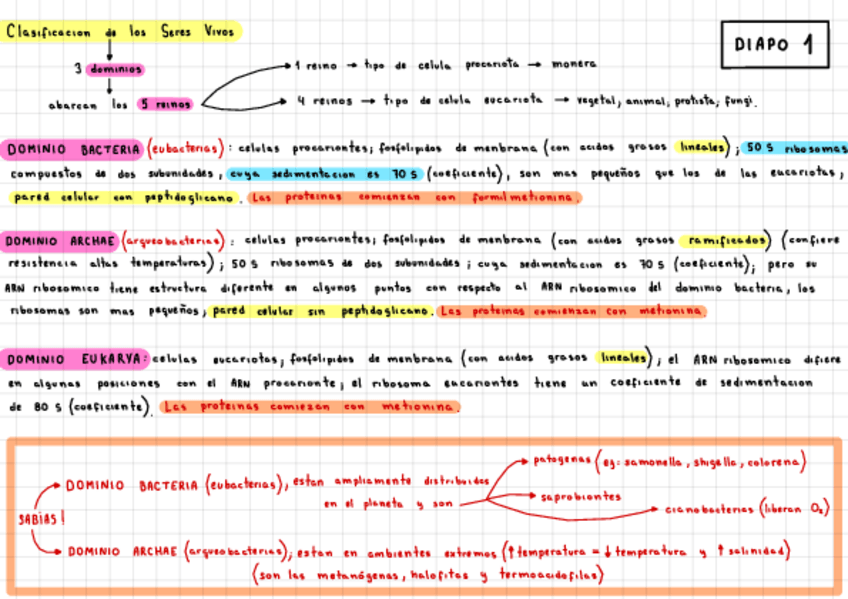 Clasificacion de los Seres Vivos
DIAPO 1
3 dominios
1 reino → tipo de celula procariota → monera
abarcan los 5 reinos
4 reinos → tipo de celula eucariota → vegetal, animal, protista, fungi.
DOMINIO BACTERIA (eubacterias): celulas procariontes; fosfolipidos de menbrana (con acidos grasos lineales); 50 S ribosomas
compuestos de dos subunidades, cuya sedimentacion es 70 S (coeficiente), son mas pequeños que los de las eucariotas,
pared celular con peptidoglicano. Las proteinas comienzan con formilmetionina.
DOMINIO ARCHAE (arqueobacterias): celulas procariontes; fosfolipidos de menbrana (con acidos grasos ramificados) (confiere
resistencia altas temperaturas); 50 S ribosomas de dos subunidades; cuya sedimentacion es 70 S (coeficiente); pero su
ARN ribosomico tiene estructura diferente en algunos puntos con respecto al ARN ribosomico del dominio bacteria, los
ribosomas son mas pequeños, pared celular sin peptidoglicano. Las proteinas comienzan con metionina.
DOMINIO EUKARYA: celulas eucariotas, fosfolipidos de menbrana (con acidos grasos lineales), el ARN ribosomico difiere
en algunas posiciones con el ARN procarionte, el ribosoma eucariontes tiene un coeficiente de sedimentacion
de 80 S (coeficiente). Las proteinas comiezan con metionina.
patogenas (ej: samonella, shigella, colorena)
DOMINIO BACTERIA (eubacterias), estan ampliamente distribuidas
en el planeta y son
saprobiontes
cianobacterias (liberan O₂)
SABIAS!
DOMINIO ARCHAE (arqueobacterias); estan en ambientes extremos (↑temperatura = ↓temperatura y ↑salinidad)
(son las metanógenas, halofitas y termoacidofilas)